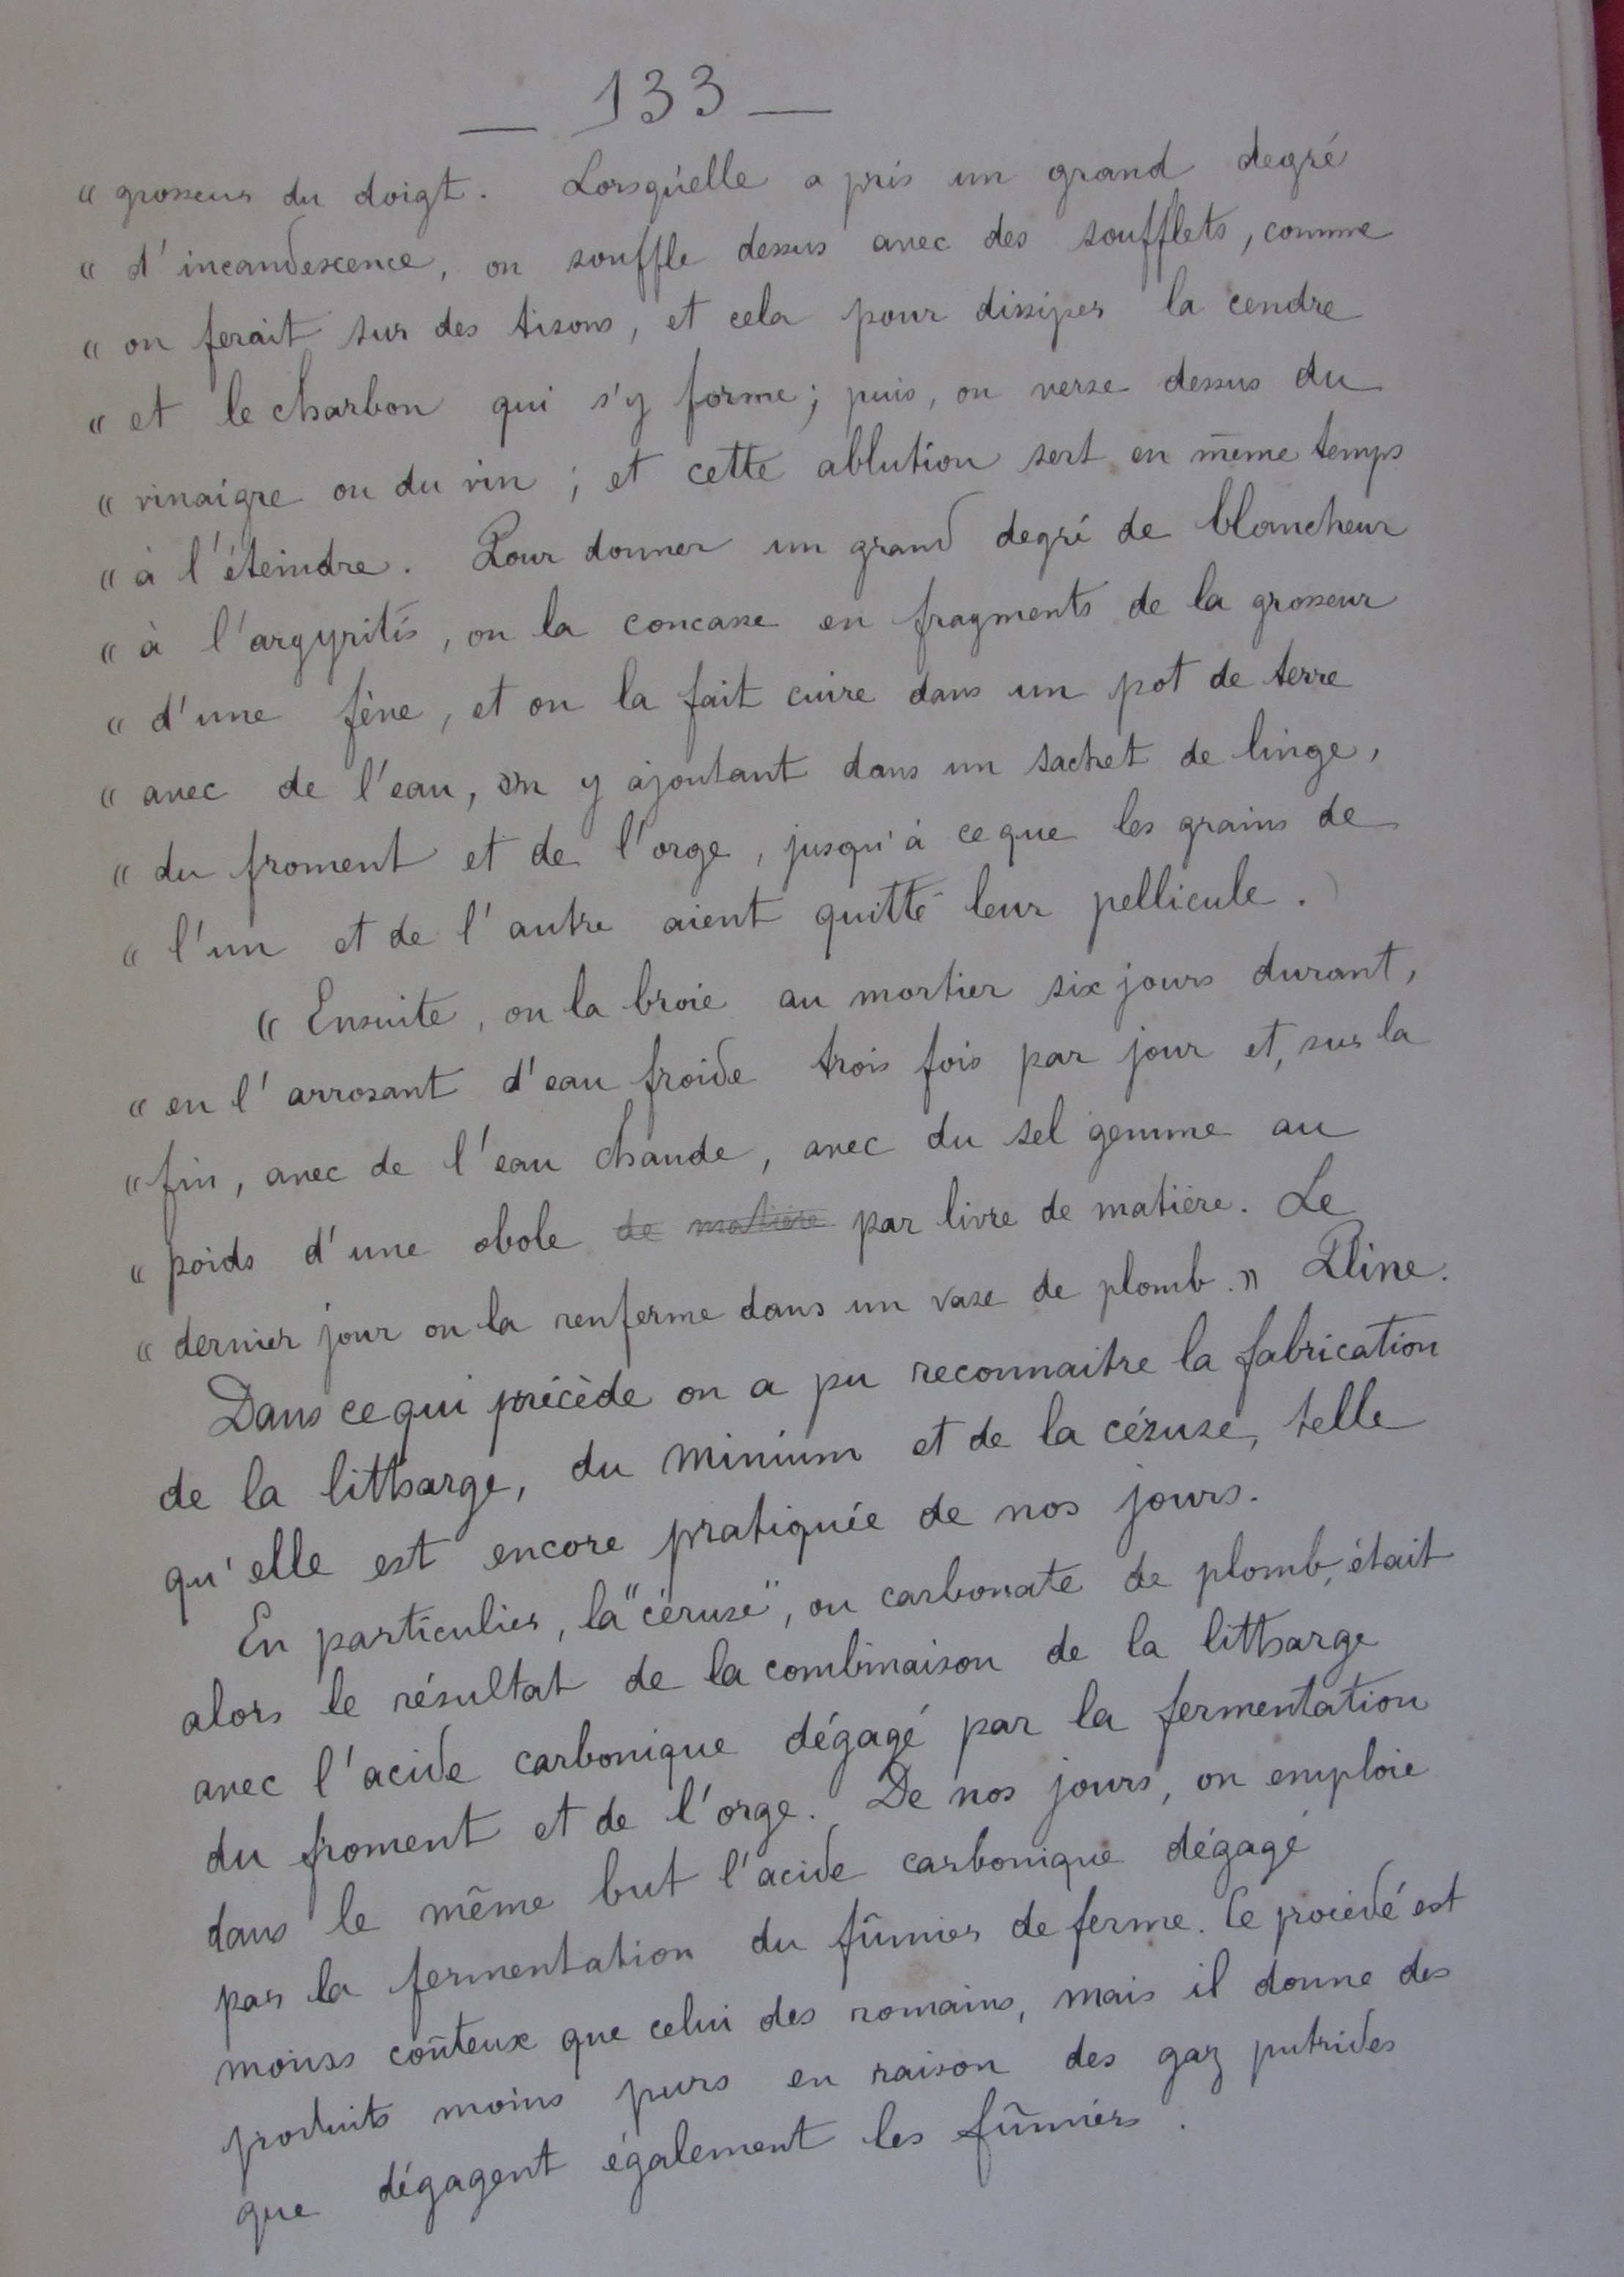 — 133 —
« grosseur du doigt. Lorsqu'elle a pris un grand degré
« d'incandescence, on souffle dessus avec des soufflets, comme
« on ferait sur des tisons, et cela pour dissiper la cendre
« et le charbon qui s'y forme; puis, on verse dessus du
« vinaigre ou du vin ; et cette ablution sert en même temps
« à l'éteindre. Pour donner un grand degré de blancheur
« à l'argyritis, on la concasse en fragments de la grosseur
« d'une fève, et on la fait cuire dans un pot de terre
« avec de l'eau, en y ajoutant dans un sachet de linge,
« du froment et de l'orge, jusqu'à ce que les grains de
« l'un et de l'autre aient quitté leur pellicule.
« Ensuite, on la broie au mortier six jours durant,
« en l'arrosant d'eau froide trois fois par jour et, sur la
« fin, avec de l'eau chaude, avec du sel gemme au
« poids d'une obole de matière par livre de matière. Le
« dernier jour on la renferme dans un vase de plomb. » Pline.
Dans ce qui précède on a pu reconnaitre la fabrication
de la litharge, du minium et de la céruse, telle
qu'elle est encore pratiquée de nos jours.
En particulier, la "céruse", ou carbonate de plomb, était
alors le résultat de la combinaison de la litharge
avec l'acide carbonique dégagé par la fermentation
du froment et de l'orge. De nos jours, on emploie
dans le même but l'acide carbonique dégagé
par la fermentation du fûmier de ferme. Ce procédé est
moins coûteux que celui des romains, mais il donne des
produits moins purs en raison des gaz putrides
que dégagent également les fûmiers.